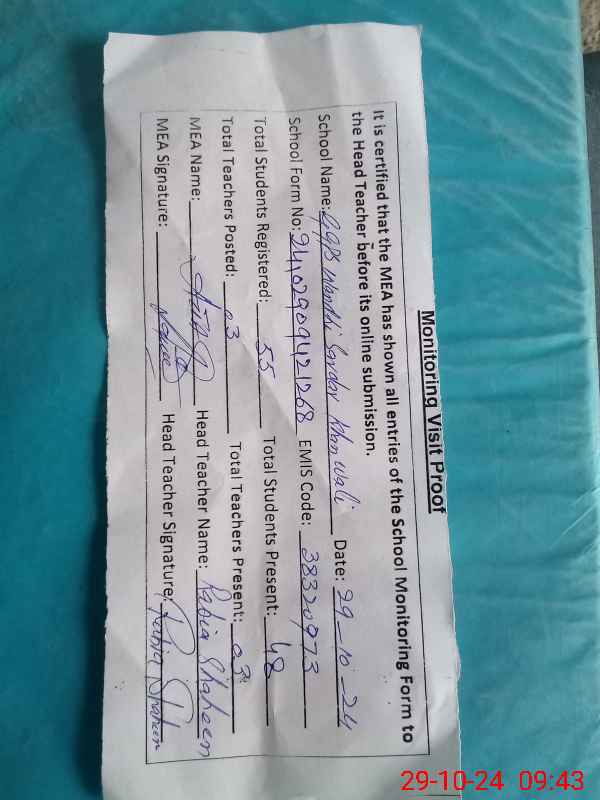 Monitoring Visit Proof
It is certified that the MEA has shown all entries of the School Monitoring Form to
the Head Teacher before its online submission.
School Name: GGPS Wandhi Sardar Khan wali Date: 29-10-24
School Form No: 24102909421268 EMIS Code: 38320973
Total Students Registered: 55 Total Students Present: 48
Total Teachers Posted: 03 Total Teachers Present: 03
MEA Name: Head Teacher Name: Rabia Shaheen
MEA Signature: Head Teacher Signature: Rabia Shaheen
29-10-24 09:43